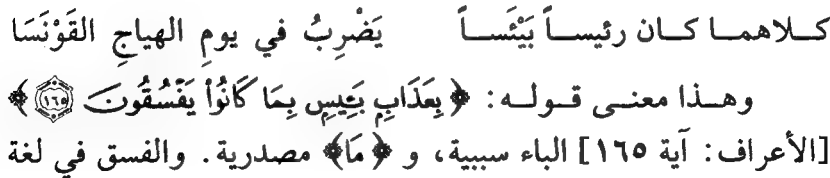 كلاهما كان رئيساً بَيْئَساً يَضْرِبُ في يومِ الهياجِ القَوْنَسَا
وهذا معنى قوله: ﴿بِعَذَابٍ بَئِيسٍ بِمَا كَانُوا يَفْسُقُونَ ١٦٥﴾
[الأعراف: آية ١٦٥] الباء سببية، و ﴿مَا﴾ مصدرية. والفسق في لغة